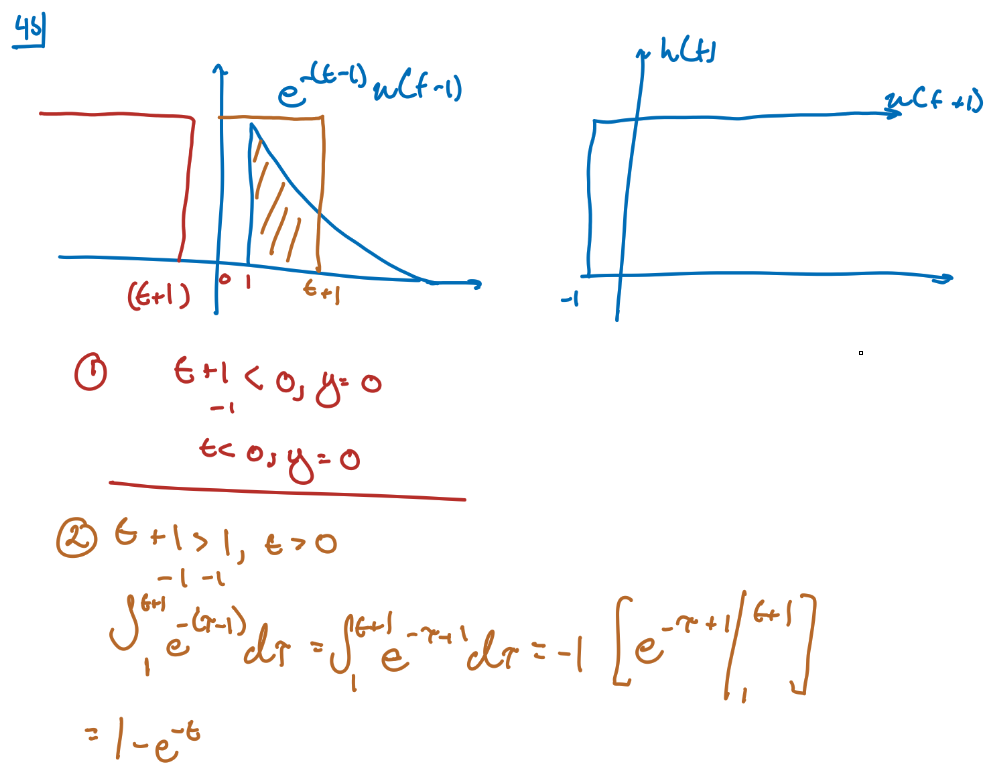 4b)
e^{-(t-1)} u(t-1)
h(t)
u(t+1)
(t+1) 0 1 t+1
-1
① t+1 < 0, y = 0
-1
t < 0, y = 0
② t+1 > 1, t > 0
-1 -1
∫_1^{t+1} e^{-(τ-1)} dτ = ∫_1^{t+1} e^{-τ+1} dτ = -1 [e^{-τ+1} |_1^{t+1}]
= 1 - e^{-t}